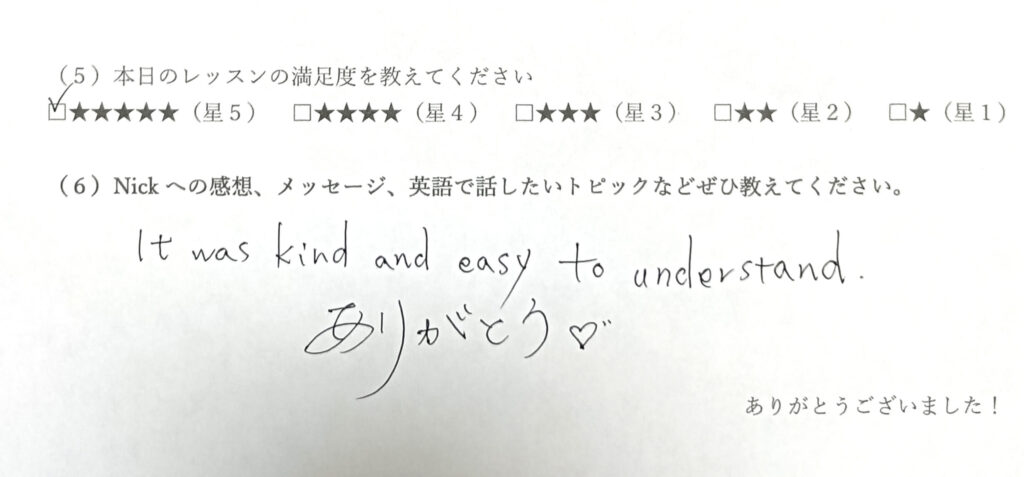 （5）本日のレッスンの満足度を教えてください
☑★★★★★（星5） □★★★★（星4） □★★★（星3） □★★（星2） □★（星1）
（6）Nick への感想、メッセージ、英語で話したいトピックなどぜひ教えてください。
It was kind and easy to understand.
ありがとう♡
ありがとうございました！